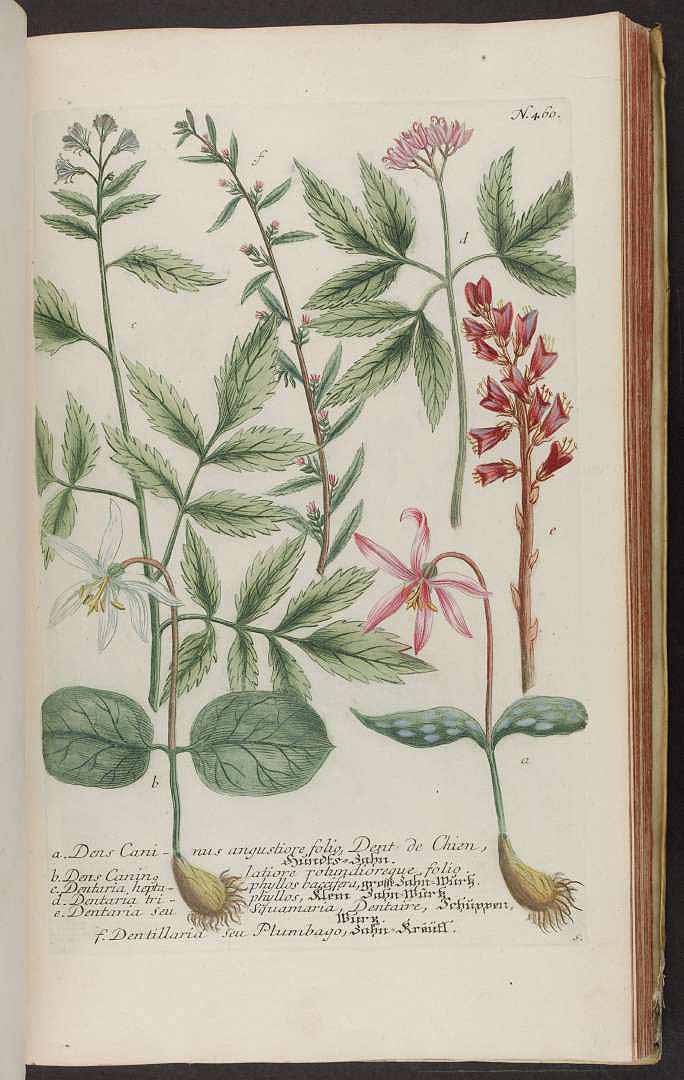 N. 460.
f
d
c
e
b
a
a. Dens Cani- nus angustiore folio, Dent de Chien,
Hundts-Zahn.
b. Dens Canino latiore rotundioreque folio
c. Dentaria hepta- phyllos baccifera, groß Zahn-Wurtz.
d. Dentaria tri- phyllos, Klein Zahn-Wurtz
e. Dentaria seu Squamaria, Dentaire, Schüppen,
Wurtz.
f. Dentillaria seu Plumbago, Zahn-Kräutl.
s.